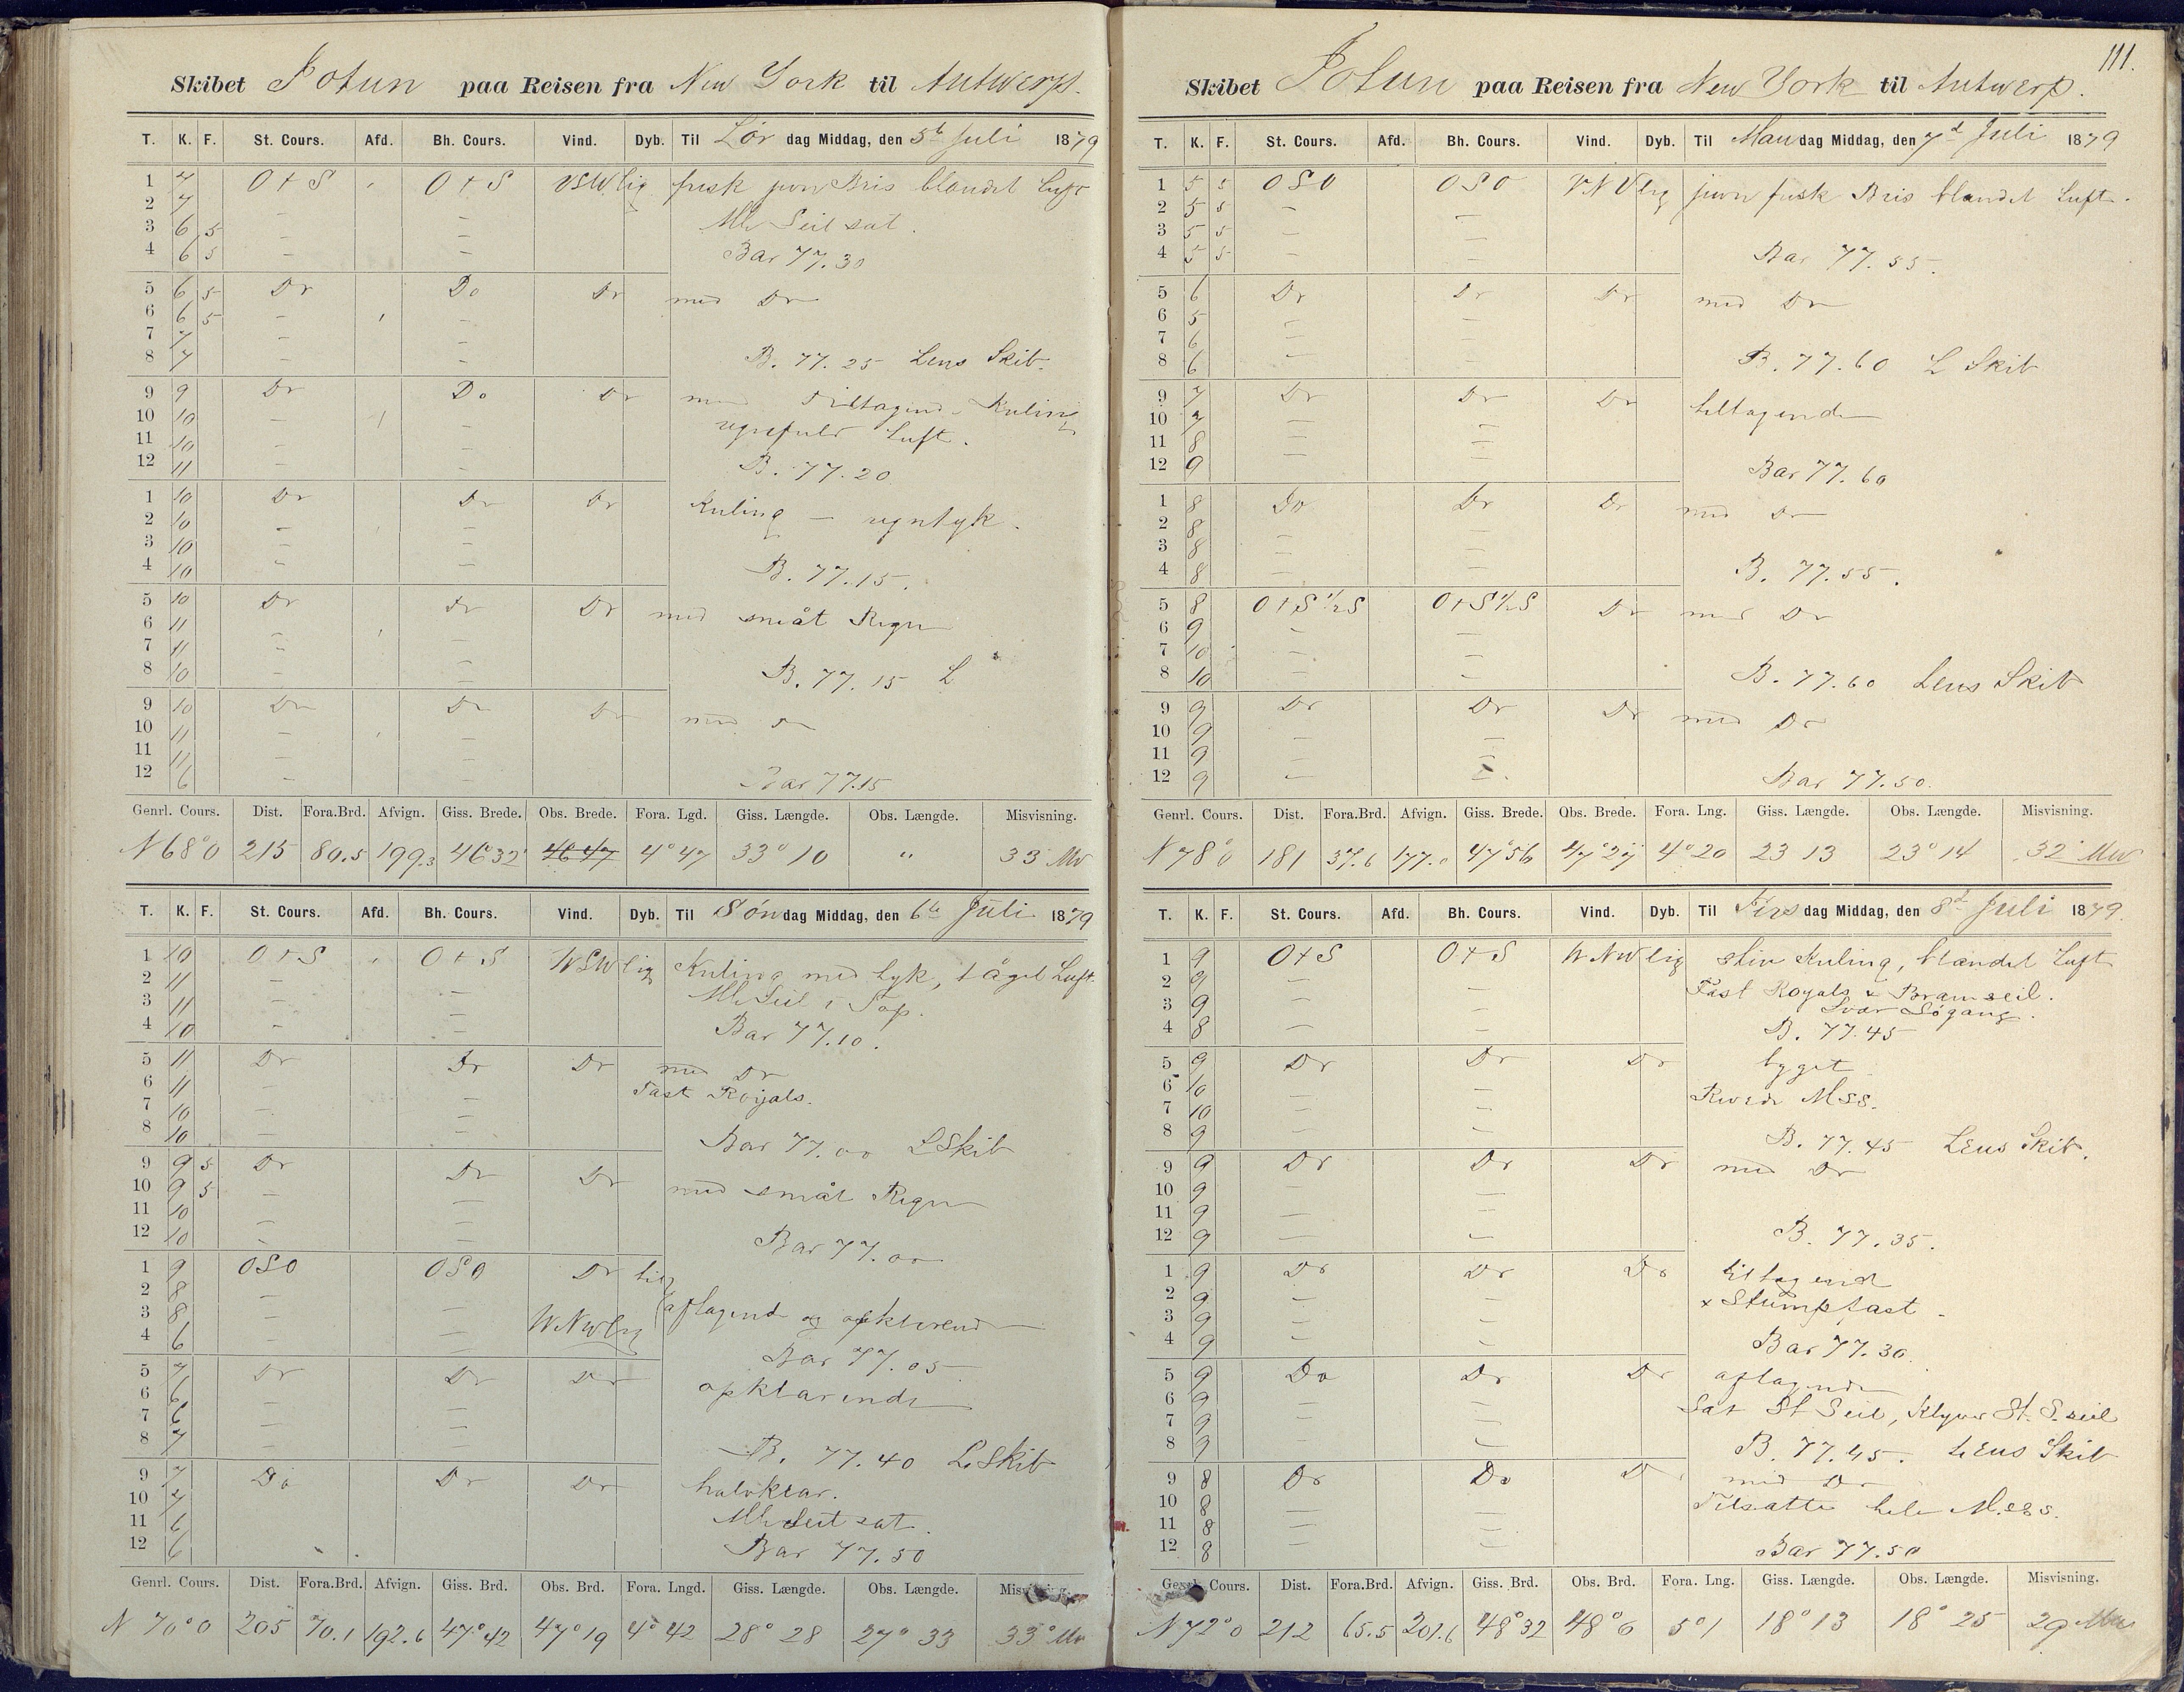 Skibet Jotun paa Reisen fra New York til Antwerp.
T. K. F. St. Cours. Afd. Bh. Cours. Vind. Dyb. Til Lør dag Middag, den 5te Juli 1879
1 7 O t S O t S VSWlig frisk jevn Bris blandet Luft
2 7 — — Alle Seil sat.
3 6 5 — —
4 6 5 — — Bar 77.30
5 6 5 Do Do Do med Do
6 6 5 — —
7 7 — —
8 7 — — B. 77.25 Lens Skib.
9 9 Do Do Do med Tiltagende Kuling
10 10 — — regnfuld Luft.
11 10 — —
12 11 — — B. 77.20
1 10 Do Do Do Kuling — regntyk.
2 10 — —
3 10 — —
4 10 — — B. 77.15.
5 10 Do Do Do med småt Regn
6 11 — —
7 11 — —
8 10 — — B. 77.15 L
9 10 Do Do Do med Do
10 11 — —
11 11 — —
12 6 — — Bar 77.15
Genrl. Cours. Dist. Fora.Brd. Afvign. Giss. Brede. Obs. Brede. Fora. Lgd. Giss. Længde. Obs. Længde. Misvisning.
N 68° O 215 80.5 199.3 46°32' 46 47 4° 47 33° 10 " 33° Mv
T. K. F. St. Cours. Afd. Bh. Cours. Vind. Dyb. Til Søn dag Middag, den 6te Juli 1879
1 10 O t S O t S WSWlig Kuling med tyk, tåget Luft.
2 11 — — Alle Seil i Top.
3 11 — —
4 10 — — Bar 77.10.
5 11 Do Do Do med Do
6 11 — — Fast Royals.
7 10 — —
8 10 — — Bar 77.00 L Skib
9 9 5 Do Do Do med småt Regn
10 9 5 — —
11 10 — —
12 10 — — Bar 77.00
1 9 OSO OSO Do til
2 8 — — aftagende og opklarende
3 8 — — WNWlig
4 6 — — Bar 77.05
5 7 Do Do Do opklarende
6 6 — —
7 6 — —
8 7 — — B. 77.40 L. Skib
9 7 Do Do Do halvklar.
10 7
11 6 Alle Seil sat.
12 6 Bar 77.50
Genrl. Cours. Dist. Fora.Brd. Afvign. Giss. Brd. Obs. Brd. Fora. Lngd. Giss. Længde. Obs. Længde. Misvisning.
N 70° O 205 70.1 192.6 47°42 47°19 4° 42 28° 28 27° 33 33° Mv
111.
Skibet Jotun paa Reisen fra New York til Antwerp.
T. K. F. St. Cours. Afd. Bh. Cours. Vind. Dyb. Til Man dag Middag, den 7de Juli 1879
1 5 5 OSO OSO VNVlig jevn frisk Bris blandet Luft.
2 5 5 — —
3 5 5 — —
4 5 5 — — Bar 77.55.
5 6 Do Do Do med Do
6 5 — —
7 6 — —
8 6 — — B. 77.60 L Skib
9 7 Do Do Do tiltagende
10 7 — —
11 8 — —
12 9 — — Bar 77.60
1 8 Do Do Do med Do
2 8 — —
3 8 — —
4 8 — — B. 77.55.
5 8 O t S ½ S O t S ½ S Do med Do
6 9 — —
7 10 — —
8 10 — — B. 77.60 Lens Skib
9 9 Do Do Do med Do
10 9 — —
11 9 — —
12 9 — — Bar 77.50.
Genrl. Cours. Dist. Fora.Brd. Afvign. Giss. Brede. Obs. Brede. Fora. Lng. Giss. Længde. Obs. Længde. Misvisning.
N 78° O 181 37.6 177.0 47°56 47°27 4° 20 23 13 23° 14 32° Mv
T. K. F. St. Cours. Afd. Bh. Cours. Vind. Dyb. Til Tirs dag Middag, den 8de Juli 1879.
1 9 O t S O t S WNWlig stiv Kuling, blandet Luft
2 9 — — Fast Royals & Bramseil.
3 9 — — Svær Søgang.
4 8 — — B. 77.45
5 9 Do Do Do byget
6 10 — — Revede Mss.
7 10 — —
8 9 — — B. 77.45 Lens Skib.
9 9 Do Do Do med Do
10 9 — —
11 9 — —
12 9 — — B. 77.35.
1 9 Do Do Do tiltagende
2 9 — — x Stumpfast
3 9 — —
4 9 — — Bar 77.30
5 9 Do Do Do aftagende
6 9 — — Sat St Seil, Klyver St. S. seil
7 9 — —
8 9 — — B. 77.45. Lens Skib
9 8 Do Do Do med Do
10 8 — — Tilsatte hele M.ss.
11 8 — —
12 8 — — Bar 77.50
Genrl. Cours. Dist. Fora.Brd. Afvign. Giss. Brd. Obs. Brd. Fora. Lng. Giss. Længde. Obs. Længde. Misvisning.
N 72° O 212 65.5 201.6 48°32 48° 6 5° 1 18° 13 18° 25 29 Mv